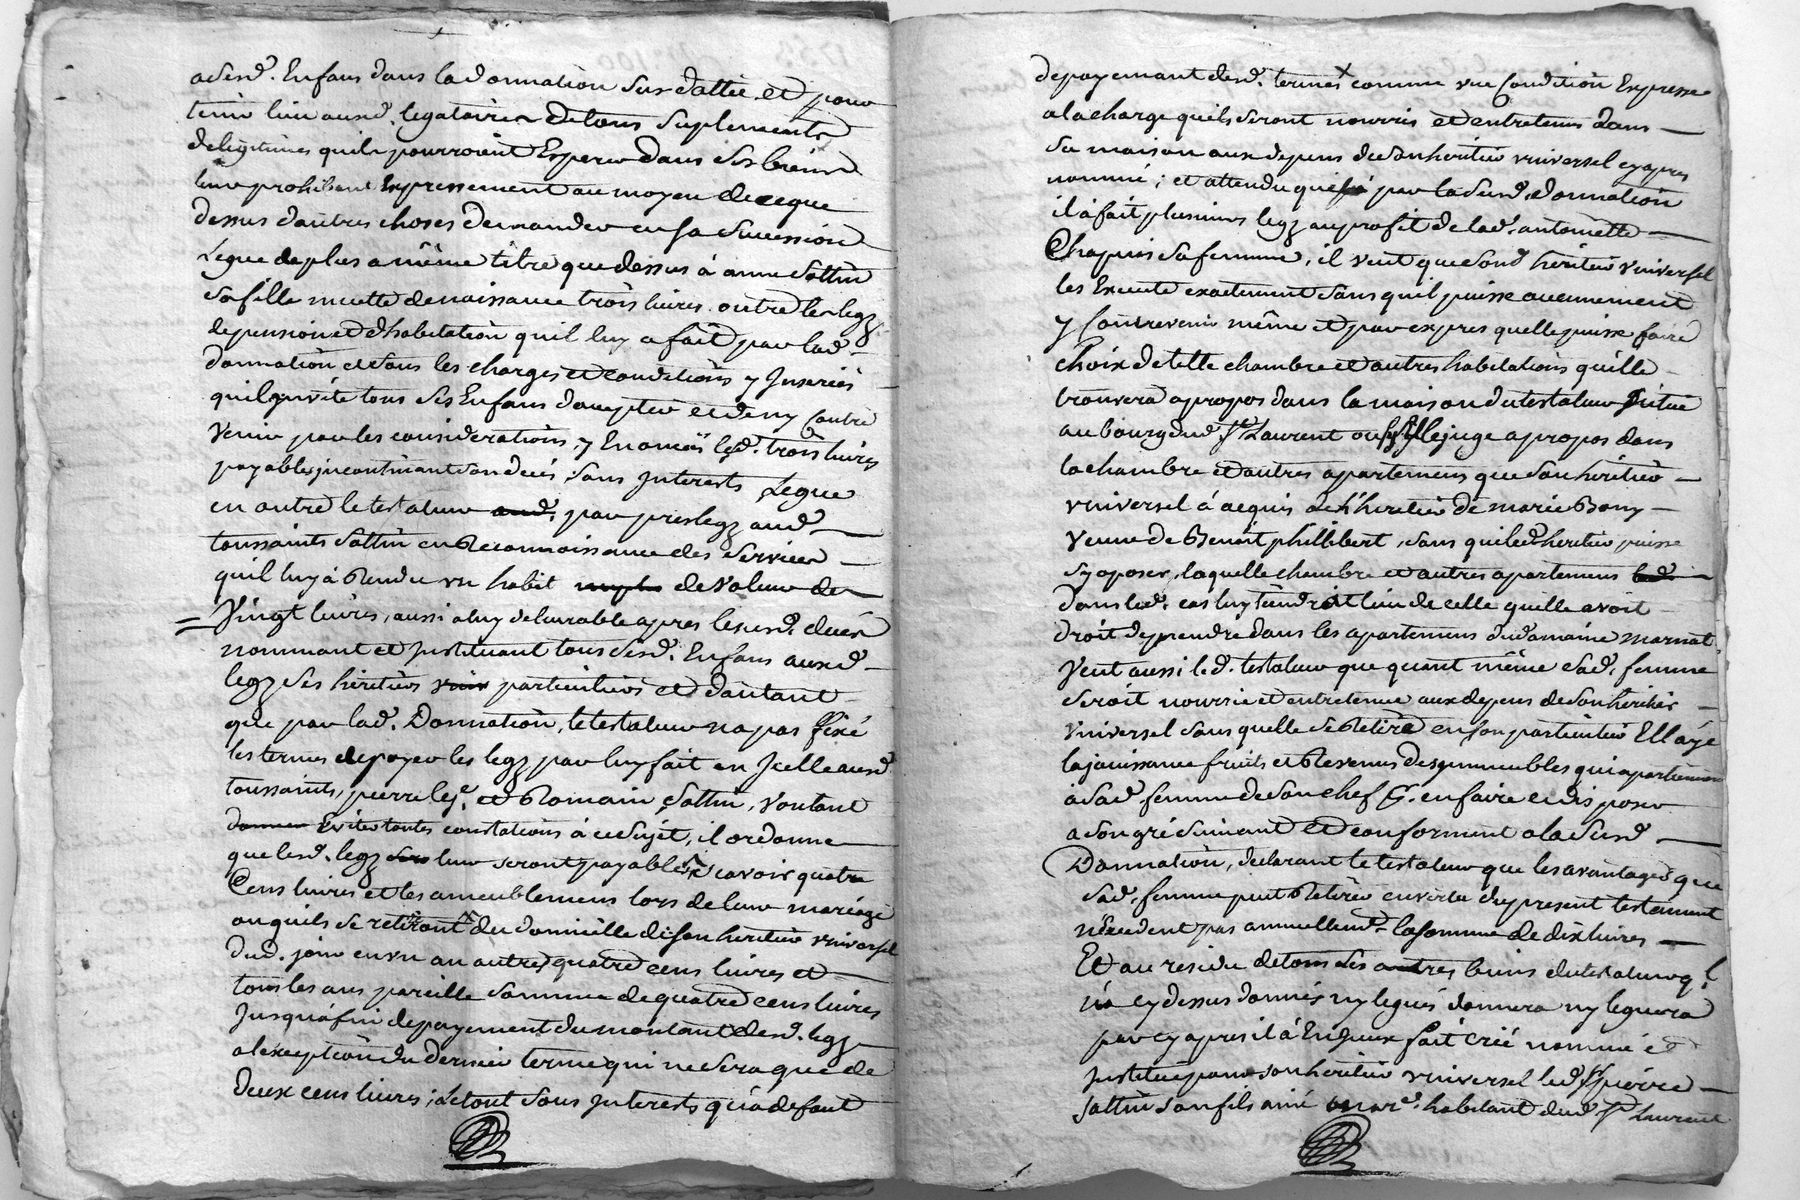 a sesd. Enfans dans la donnation sus dattée et pour
tenir lieu auxd. legataires de tous suplements
de legitimes quils pourroient Esperer dans ses biens
leur prohibant Expressement au moyen de ce que
dessus d'autres choses demander en sa succession
Legue de plus a même titre que dessus à anne Sattin
sa fille muette de naissance trois livres outre les legz
de pension et d'habitation quil luy a fait par lad.
donnation et sous les charges et conditions y Inserées
quil invite tous ses Enfans d'accepter et de ny contre
venir par les considerations y Enoncés lesd. trois livres
payables incontinant son decés, sans Interests Legue
en outre le testateur aud. par prelegz aud.
toussaints Sattin en Reconnoissance des services
quil luy à Rendu un habit de valeur de
Vingt livres, aussi a luy delivrable apres lesusd. decés
nommant et Instituant tous sesd. Enfans auxd.
legz ses heritiers particuliers et d'autant
que par lad. Donnation, le testateur na pas ffixé
les termes de payer les legz par luy fait en Icelle auxd.
toussaints, pierre le je. et Romain Sattin, voulant
Eviter toutes contestations à ce sujet, il ordonne
que lesd. legz leur seront payables, scavoir quatre
Cens livres et les ameublemens lors de leur mariage
ou quils se retireront du domicille de son heritier universel
dud. jour en un an autres quatre cens livres et
tous les ans pareille somme de quatre cens livres
Jusqu'a fin de payement du montant desd. legz
a l'exception du dernier terme qui ne sera que de
deux cens livres; Le tout sans Interests qu'à defaut
de payemant desd. termes comme une Condition Expresse
a la charge quils seront nourris et entretenus dans
sa maison aux depens de son heritier universel cy apres
nommé; et attendu que par la susd. donnation
il à fait plusieurs legz au profit de lad. antoinette
Chapuis sa femme, il veut que sond. héritier universel
les Execute exactement sans quil puisse aucunement
y Contrevenir même et par expres quelle puisse faire
choix de telle chambre et autres habitations quille
trouvera a propos dans la maison du testateur scituée
au bourg dud. St. Laurent ou si Elle juge a propos dans
la chambre et autres apartemens que son heritier
universel à acquis de l'heritier de marie Bony
veuve de Benoit phillibert, sans que led. heritier puisse
sy oposer, laquelle chambre et autres apartemens
dans led. cas luy tiendroit lieu de celle quelle avoit
droit de prendre dans les apartemens du domaine marnat
Veut aussi led. testateur que quant même sad. femme
seroit nourrie et entretenue aux depens de son heritier
universel sans quelle se Retire en son particulier Ell aye
la jouissance fruits et Revenus des immeubles qui apartiennent
à sad. femme de son chef en faire et disposer
a son gré suivant et conforment a la susd.
Donnation, declarant le testateur que les avantages que
sad. femme peut Retirer en vertu du present testament
n'excedent pas annuellemt. la somme de dix livres
Et au residu de tous ses autres biens du testateur ql
n'à cy dessus donnés ny legués donnera ny leguera
par cy apres il à En Iceux fait créé nommé et
Institué pour son heritier universel led. Sr. pierre
Sattin son fils ainé mar. habitant dud. St. Laurent